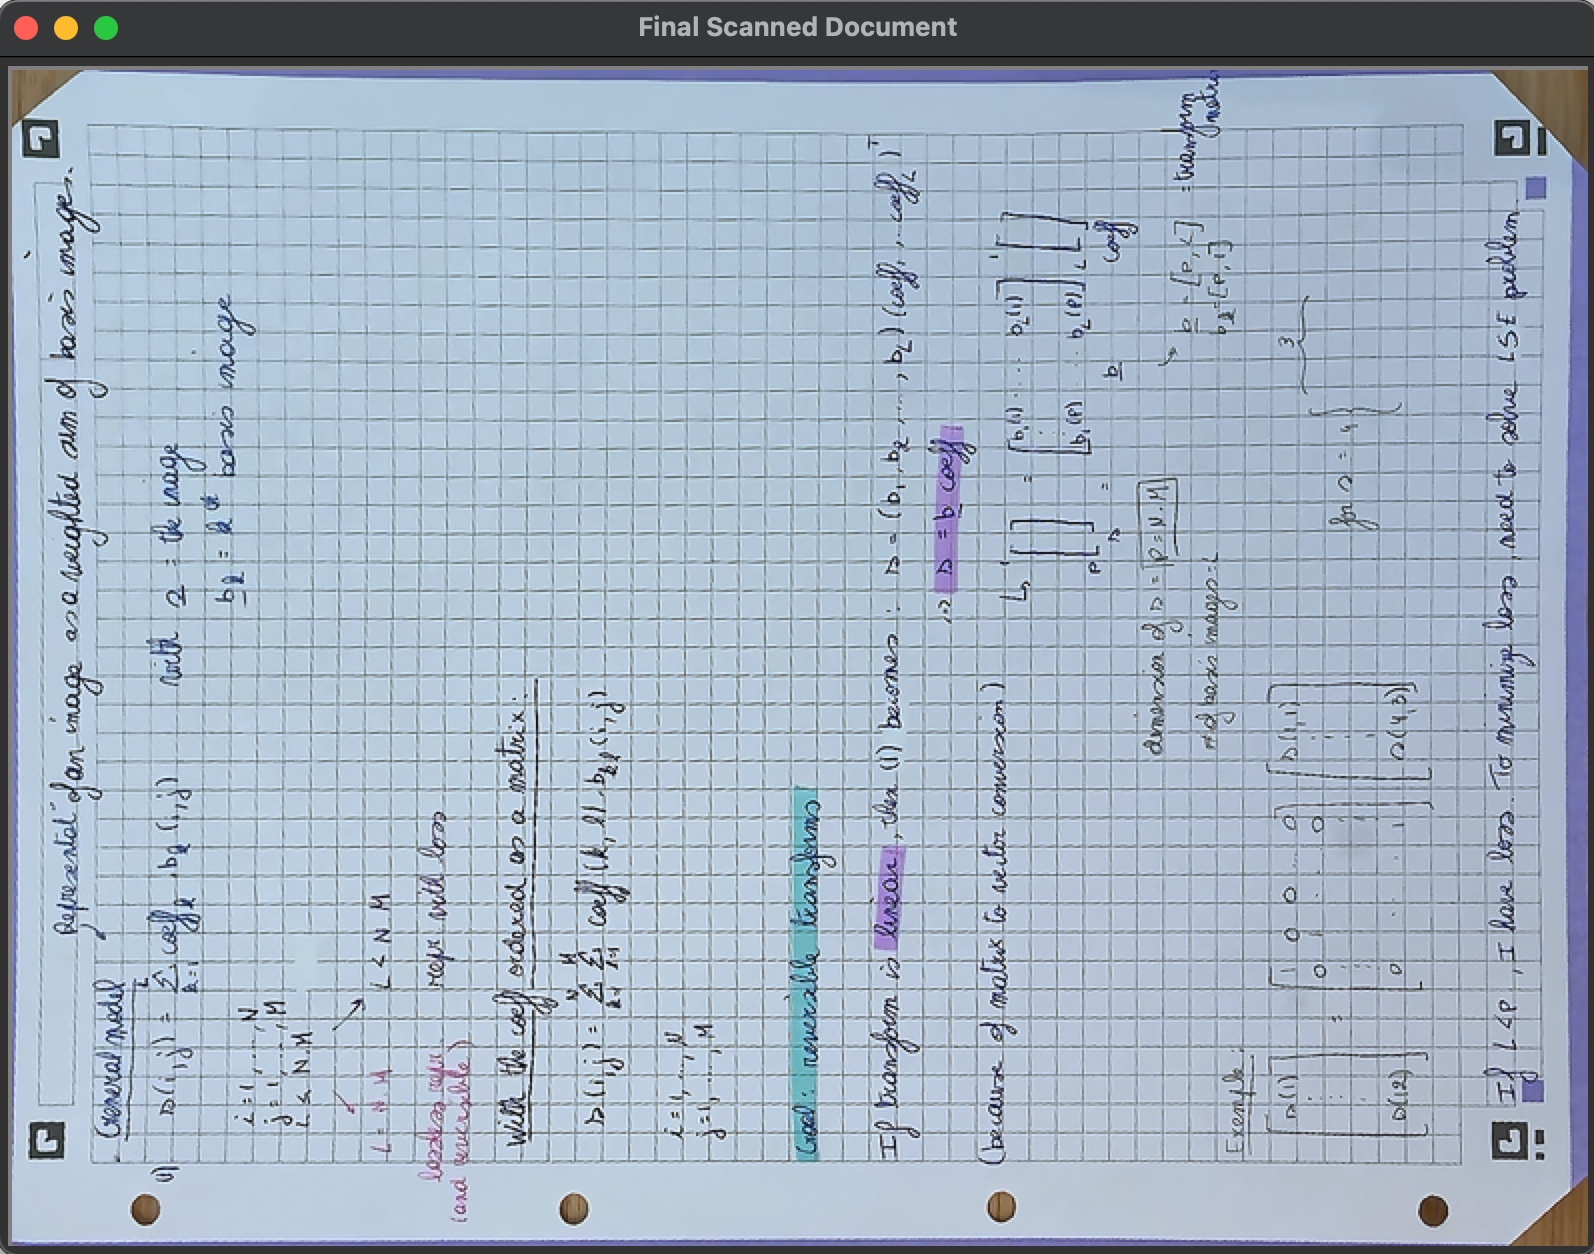 Final Scanned Document
Represental° of an image as a weighted sum of basis images.
General model
(1) s(i,j) = Σ_{k=1}^{L} coeff_k . b_k(i,j) with s = the image
b_k = k th basis image
i = 1, ..., N
j = 1, ..., M
L ≤ N.M
L = N.M L < N M
lossless repr. repr with loss
(and reversible)
With the coeff ordered as a matrix:
s(i,j) = Σ_{k=1}^{N} Σ_{l=1}^{M} coeff(k,l) . b_kl(i,j)
i = 1, ..., N
j = 1, ..., M
Goal: reversible transforms
If transform is linear, then (1) becomes: s = (b_1, b_2, ..., b_L) (coeff_1, ..., coeff_L)^T
s = b coeff
(because of matrix to vector conversion)
[ ] = [b_1(1) ... b_L(1)] [ ]
P [ ] [b_1(P) ... b_L(P)] L [ ]
s = b coeff
dimension of s = P = N.M
b = [P, L] = transform
b_k = [P, 1]
# of basis images = L
Example:
[s(1)] = [1 0 0 ... 0] [s(1,1)]
[s(12)] [0 ... 1] [s(4,3)]
for s = 4 { } 3
If L < P, I have loss. To minimize loss, need to solve LSE problem